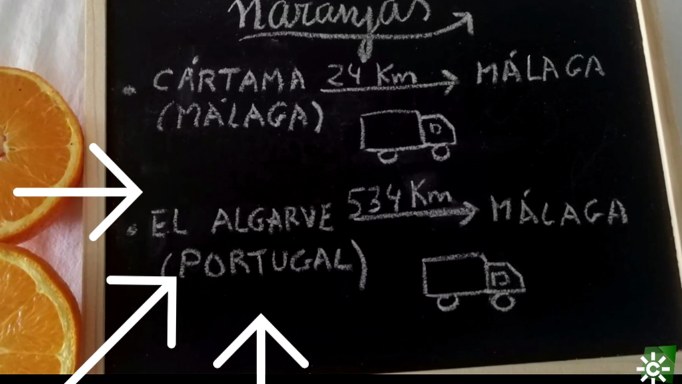 Naranjas
• CÁRTAMA 24 Km MÁLAGA
(MÁLAGA)
• EL ALGARVE 534 Km MÁLAGA
(PORTUGAL)